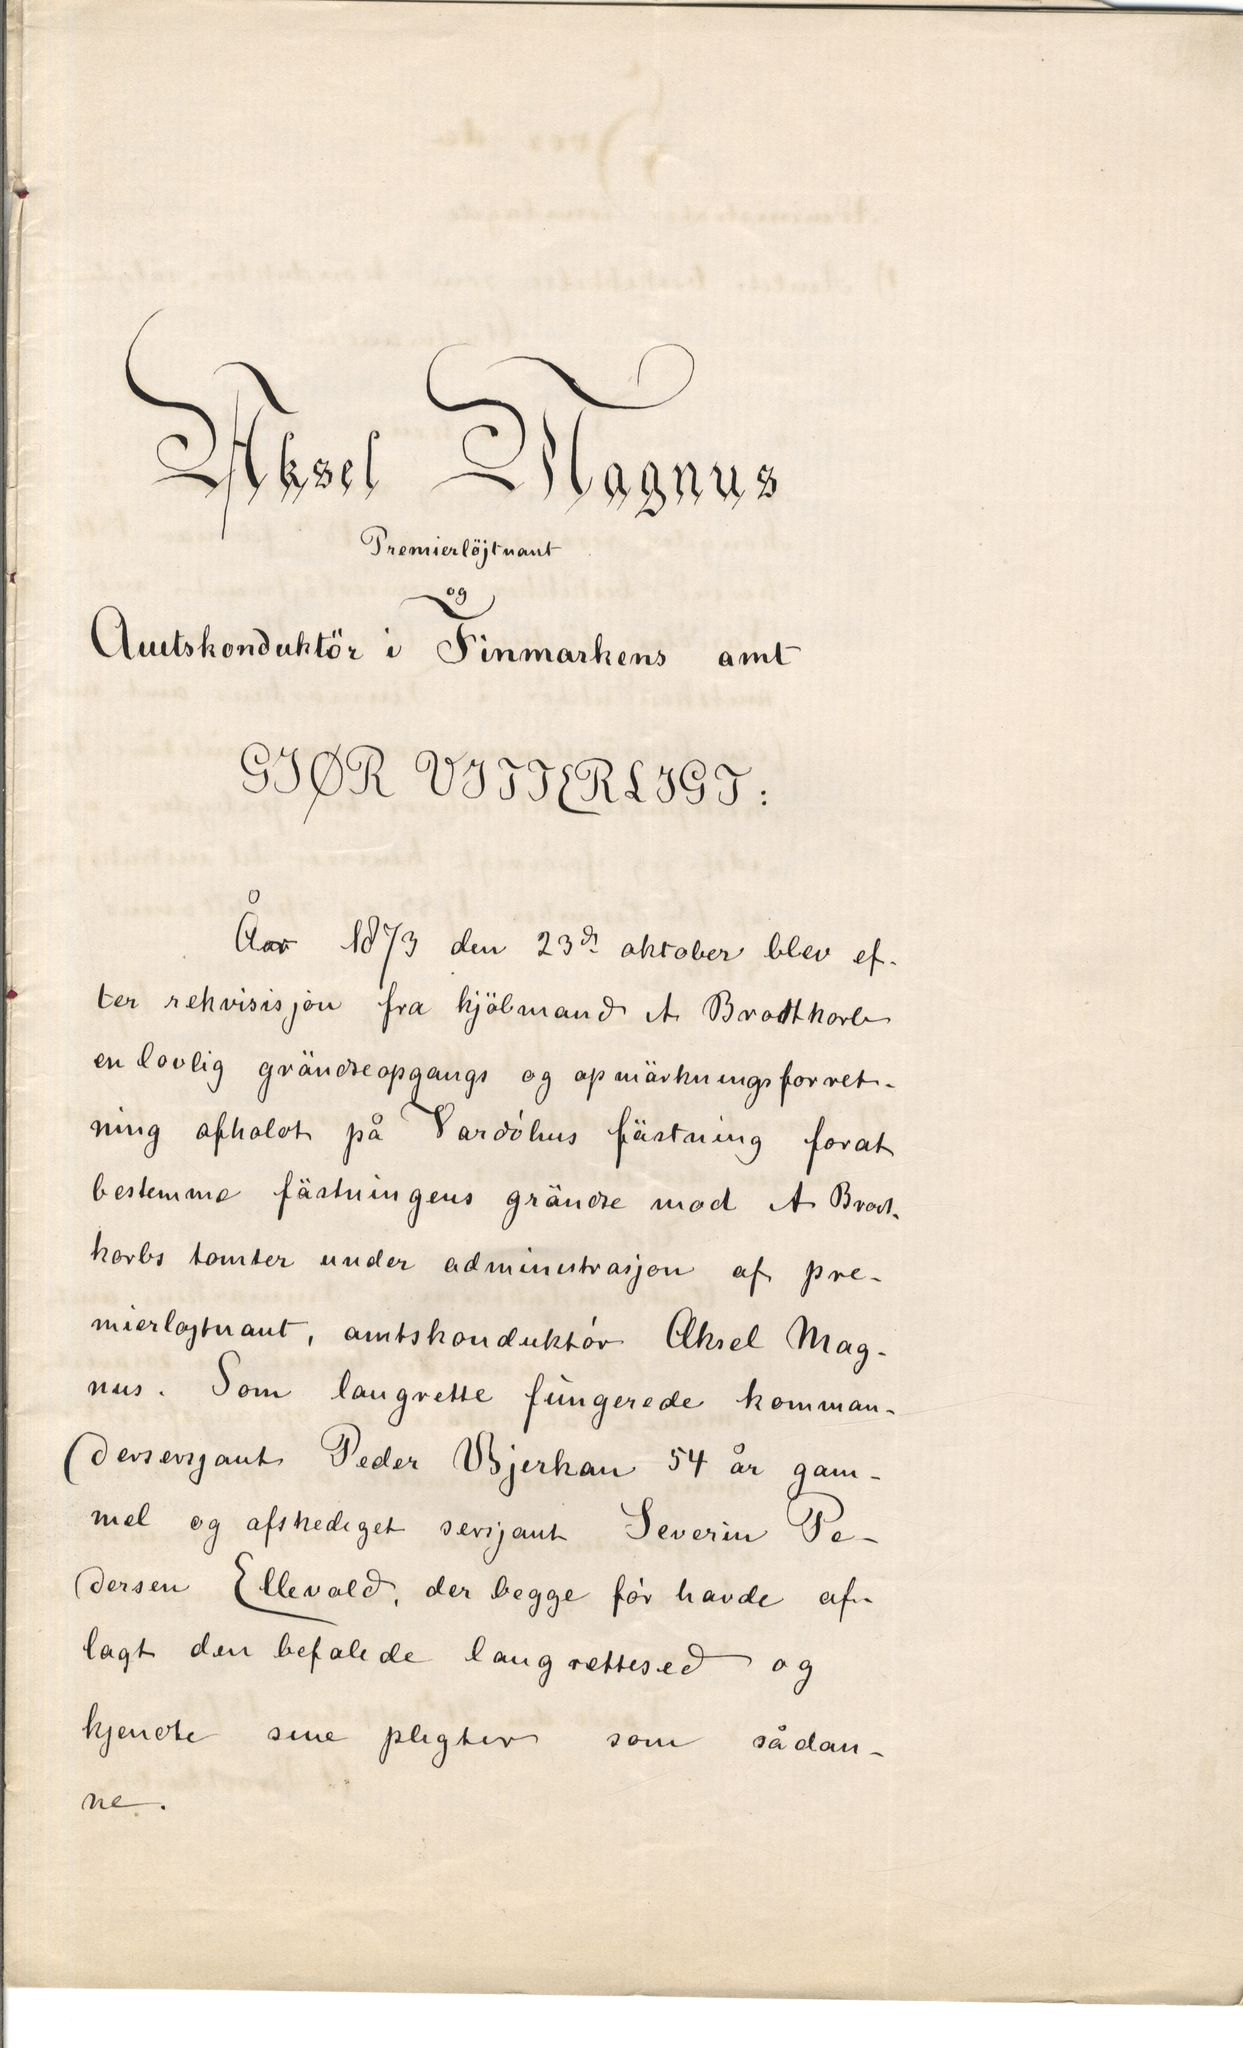 Aksel Magnus
Premierlöjtnant
og
Amtskonduktör i Finmarkens amt
GJØR VITTERLIGT:
År 1873 den 23d oktober blev ef-
ter rekvisisjon fra kjöbmand A Brodtkorb
en lovlig grändseopgangs og opmärkningsforret-
ning afholdt på Vardöhus fästning forat
bestemme fästningens grändse mod A Brodt-
korbs tomter under administrasjon af pre-
mierlojtnant, amtskonduktór Aksel Mag-
nus. Som laugrette fungerede komman-
dersersjant Peder Bjerkan 54 år gam-
mel og afskediget sersjant Severin Pe-
dersen Ellevold, der begge för havde af-
lagt den befalede laugrettesed og
kjendte sine pligter som sådan-
ne.